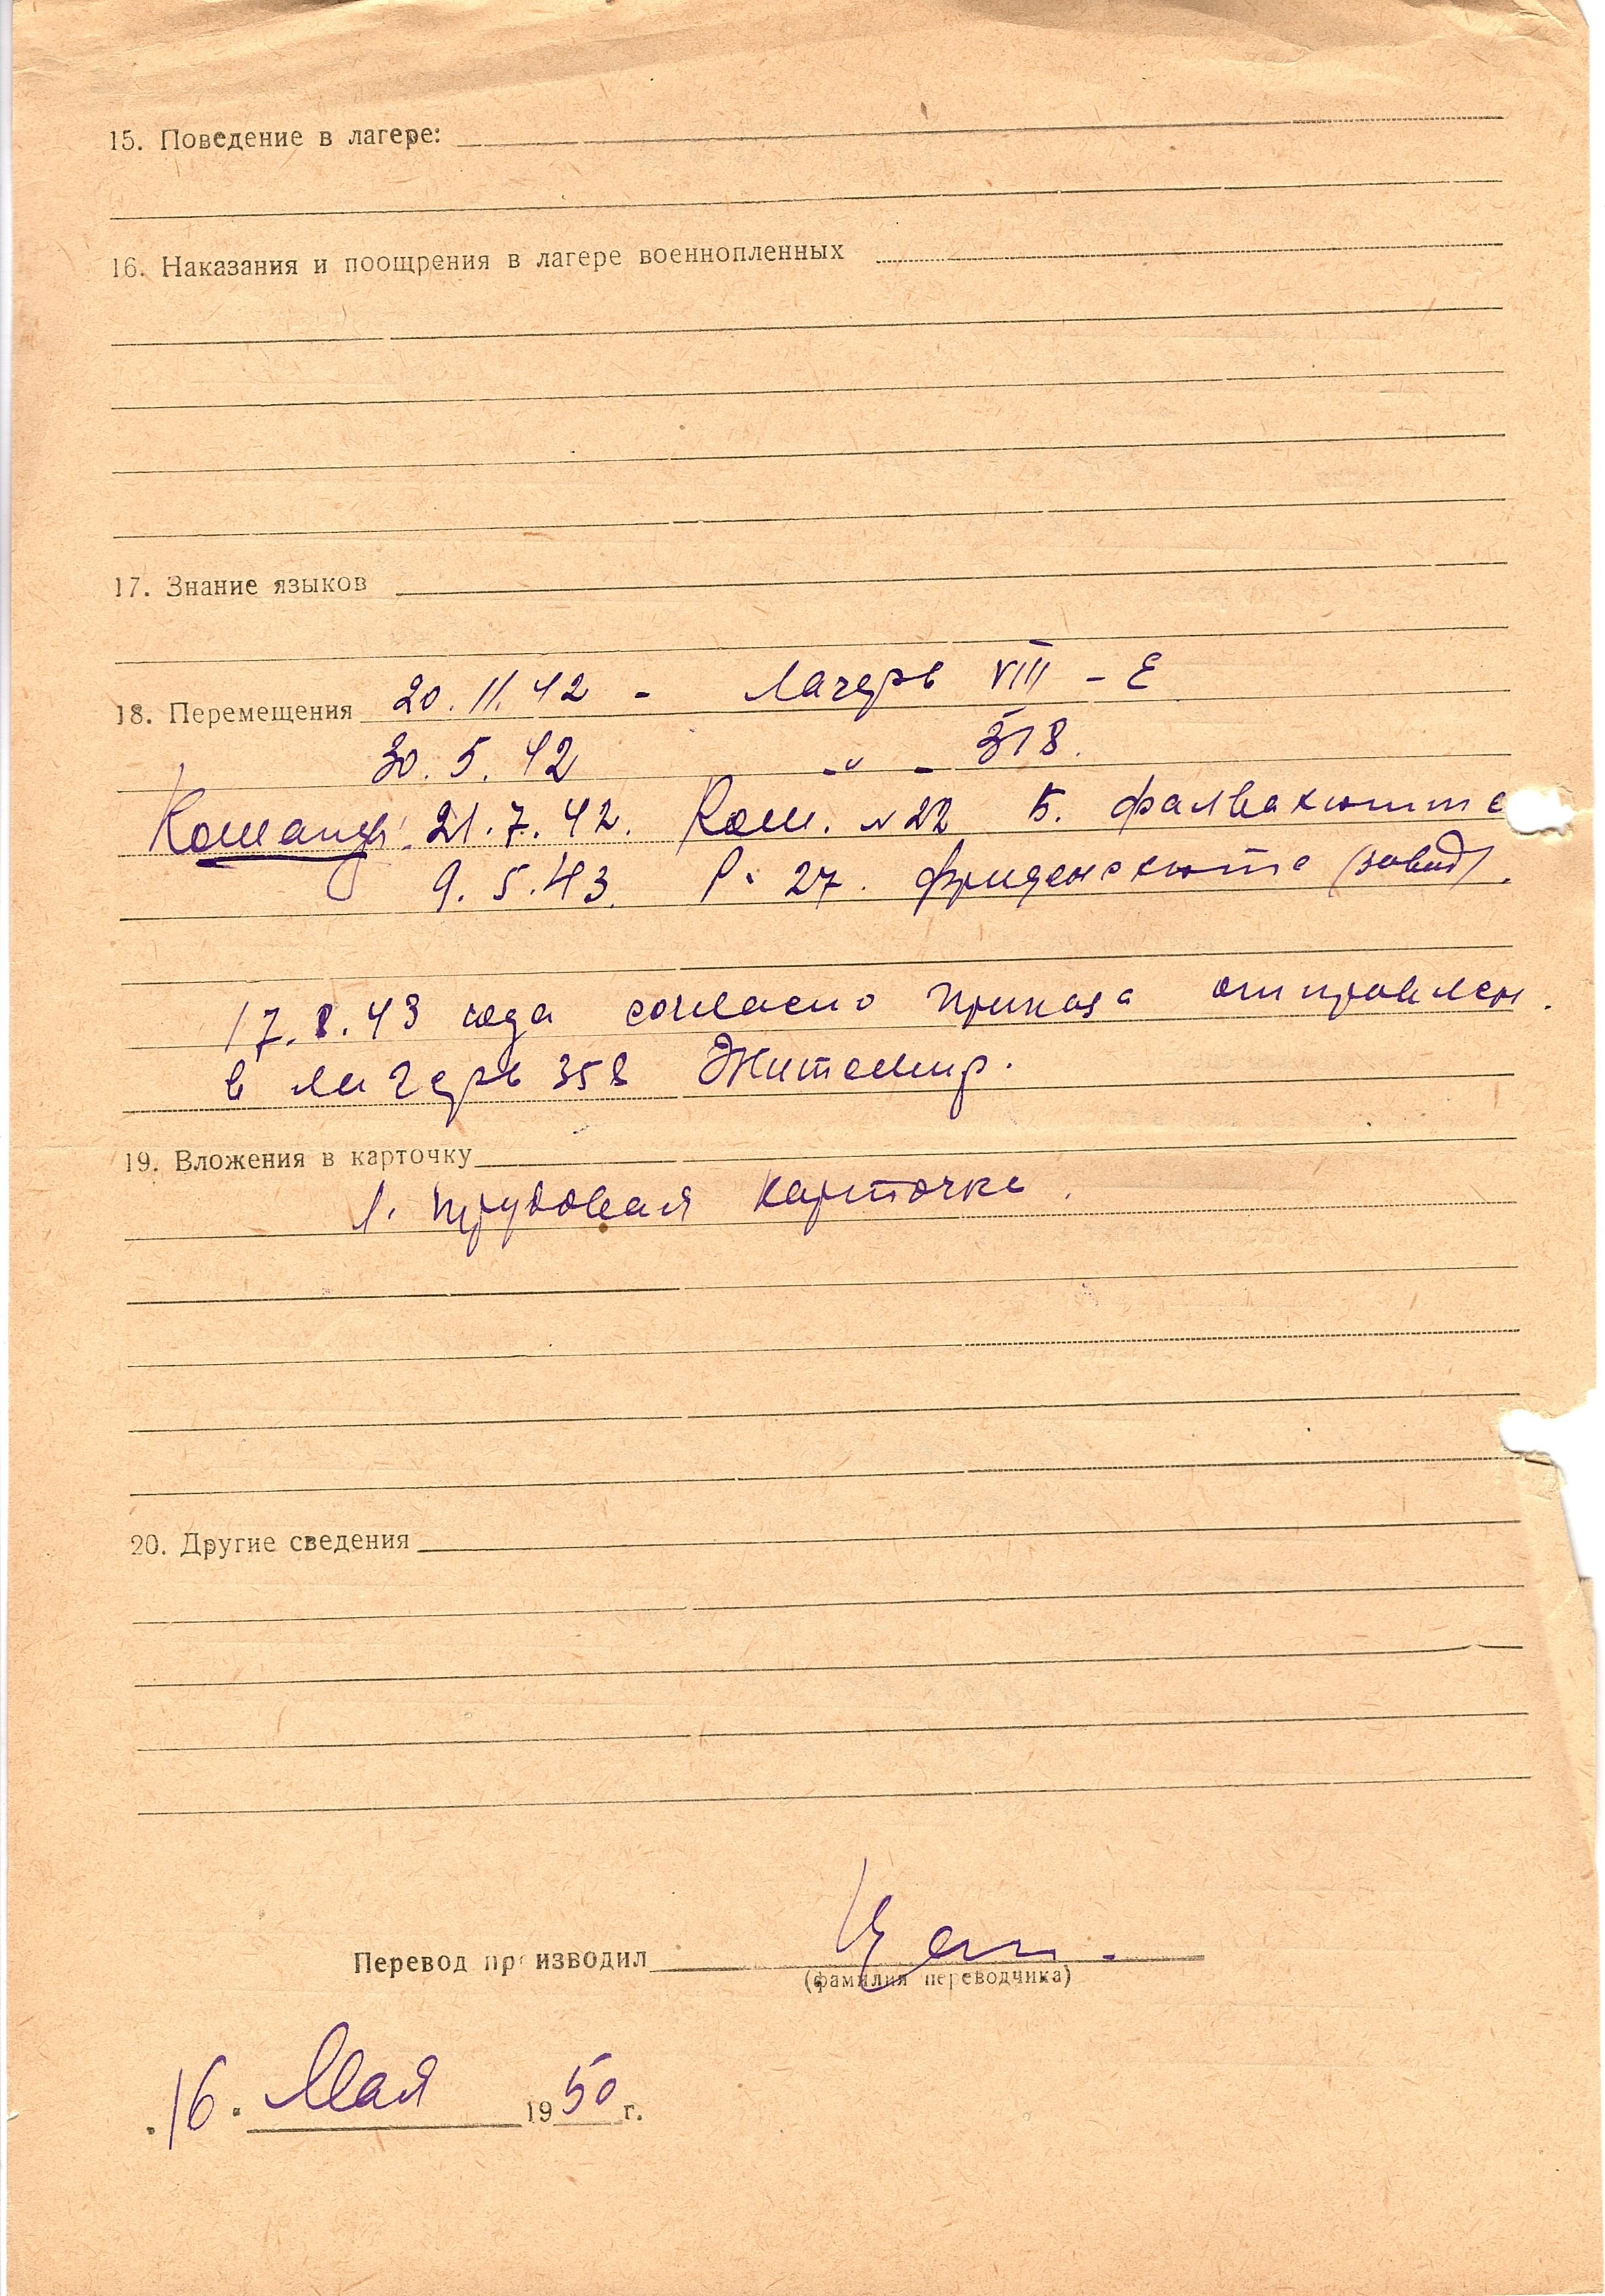 15. Поведение в лагере:
16. Наказания и поощрения в лагере военнопленных
17. Знание языков
18. Перемещения 20.11.42 - Лагерь VIII - Е
30.5.42 -"- 318.
Команды: 21.7.42. Ком. №22 Б. Фалвахютте
9.5.43. Р. 27. Фриденсхютте (завод).
17.8.43 года согласно приказа отправлен.
в лагерь 358 Житомир.
19. Вложения в карточку
1. трудовая карточка.
20. Другие сведения
Перевод производил
(фамилия переводчика)
16. Мая 1950 г.